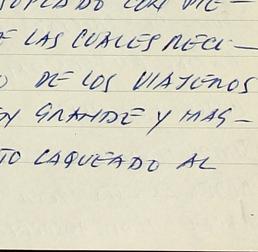 CON PIE—
E LAS CUALES RECI—
O DE LOS VIAJEROS
EN GRANDE Y MAG—
TO LAQUEADO AL